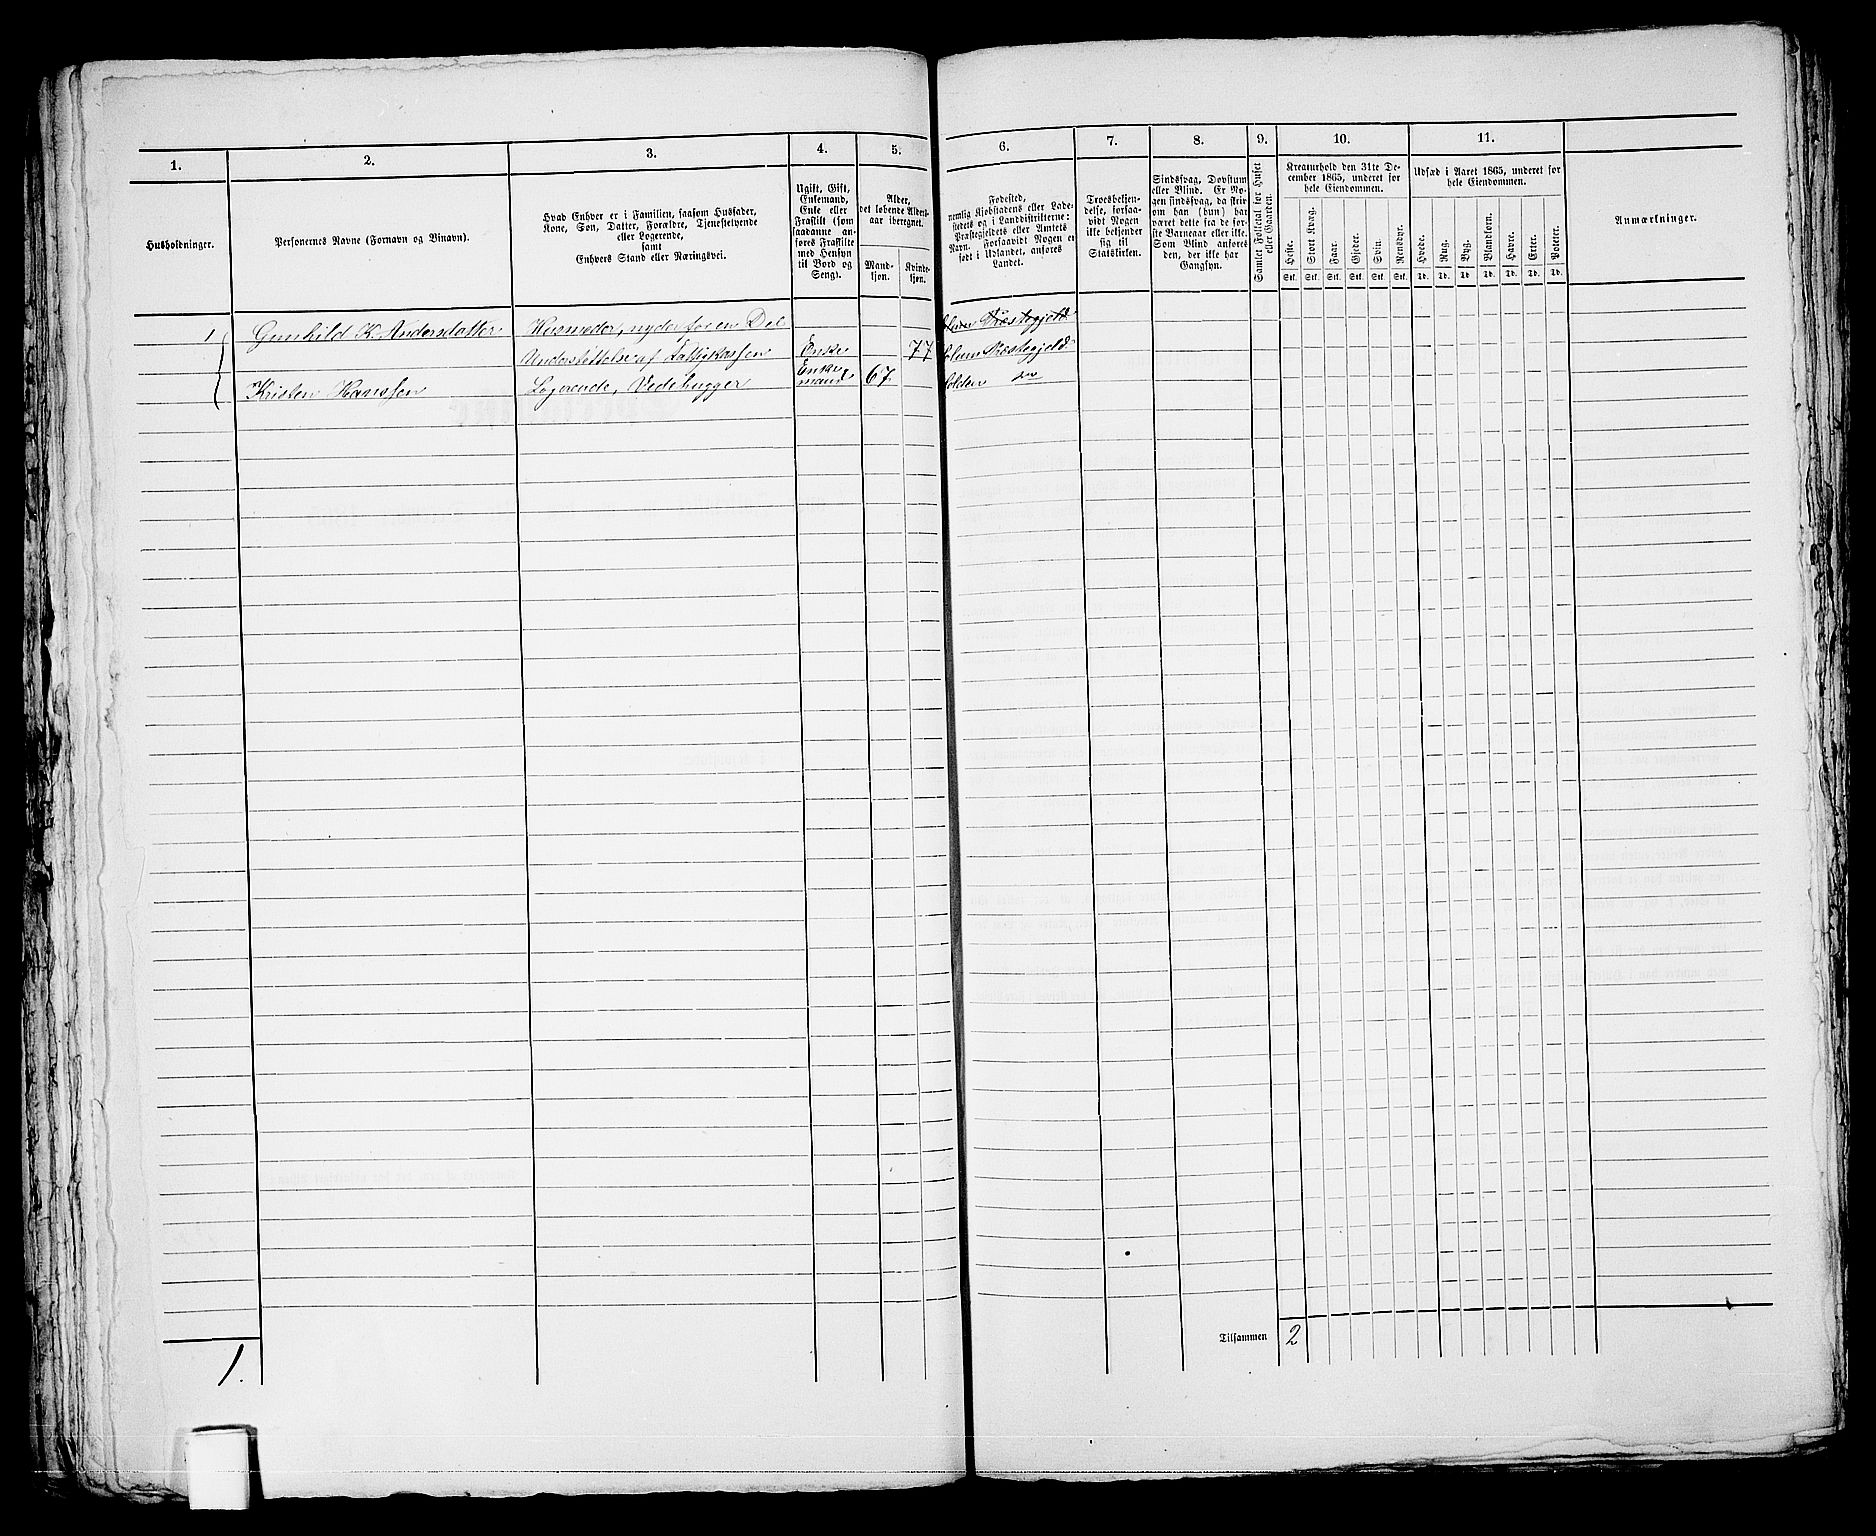 1.
2.
3.
4.
5.
6.
7.
8.
9.
10.
11.
Husholdninger.
Personernes Navne (Fornavn og Binavn).
Hvad Enhver er i Familien, saasom Husfader,
Kone, Søn, Datter, Forældre, Tjenestetyende
eller Logerende,
samt
Enhvers Stand eller Næringsvei.
Ugift, Gift,
Enkemand,
Enke eller
Fraskilt (som
saadanne an-
føres Fraskilte
med Hensyn
til Bord og
Seng).
Alder,
det løbende Alders-
aar iberegnet.
Mand-
kjøn.
Kvinde-
kjøn.
Fødested,
nemlig Kjøbstadens eller Lade-
stedets og i Landdistrikterne:
Præstegjeldets eller Amtets
Navn. Forsaavidt Nogen er
født i Udlandet, anføres
Landet.
Troesbekjen-
delse, forsaa-
vidt Nogen
ikke bekjender
sig til
Statskirken.
Sindssvag, Døvstum
eller Blind. Er No-
gen sindssvag, da skriv
om han (hun) har
været dette fra de før-
ste Barneaar eller ikke.
Som Blind anføres
den, der ikke har
Gangsyn.
Samlet Folketal for Huset
eller Gaarden.
Kreaturhold den 31te De-
cember 1865, underet for
hele Eiendommen.
Heste.
Stort Kvæg.
Faar.
Gjeder.
Svin.
Rensdyr.
Stk. Stk. Stk. Stk. Stk. Stk.
Udsæd i Aaret 1865, underet for
hele Eiendommen.
Hvede.
Rug.
Byg.
Blandkorn.
Havre.
Erter.
Poteter.
Td. Td. Td. Td. Td. Td. Td.
Anmærkninger.
1 Gunhild K. Andersdatter Husmoder, nyder for en Del
Understøttelse af Fattigkassen Enke 77 Solum Præstegjeld
Kristen Hanssen Logerende, Vedehugger Enke-
mand 67
Tilsammen 2
1.